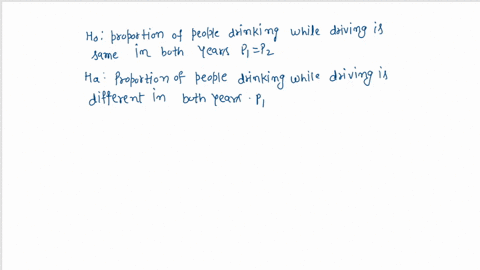 Ho: proportion of people drinking while driving is
same in both years P₁=P₂
Ha: Proportion of people drinking while driving is
different in both years. P₁